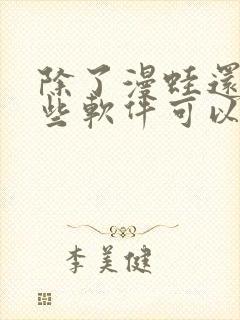 除了漫蛙還
些軟件可以
李美健